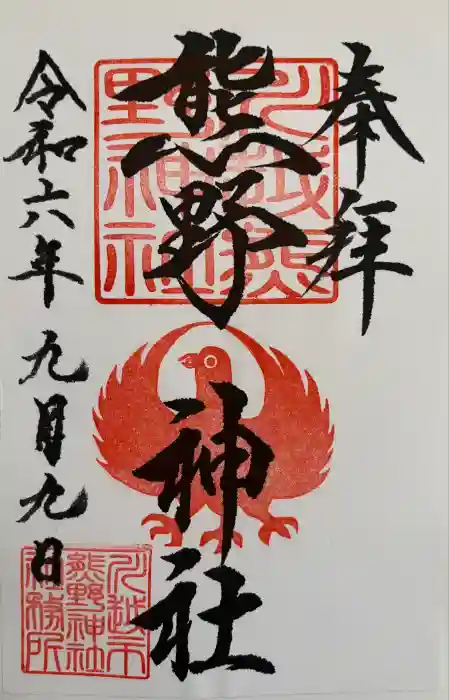 奉拝
熊野神社
令和六年九月九日
川越熊
野神社
川越市
熊野神社
社務所